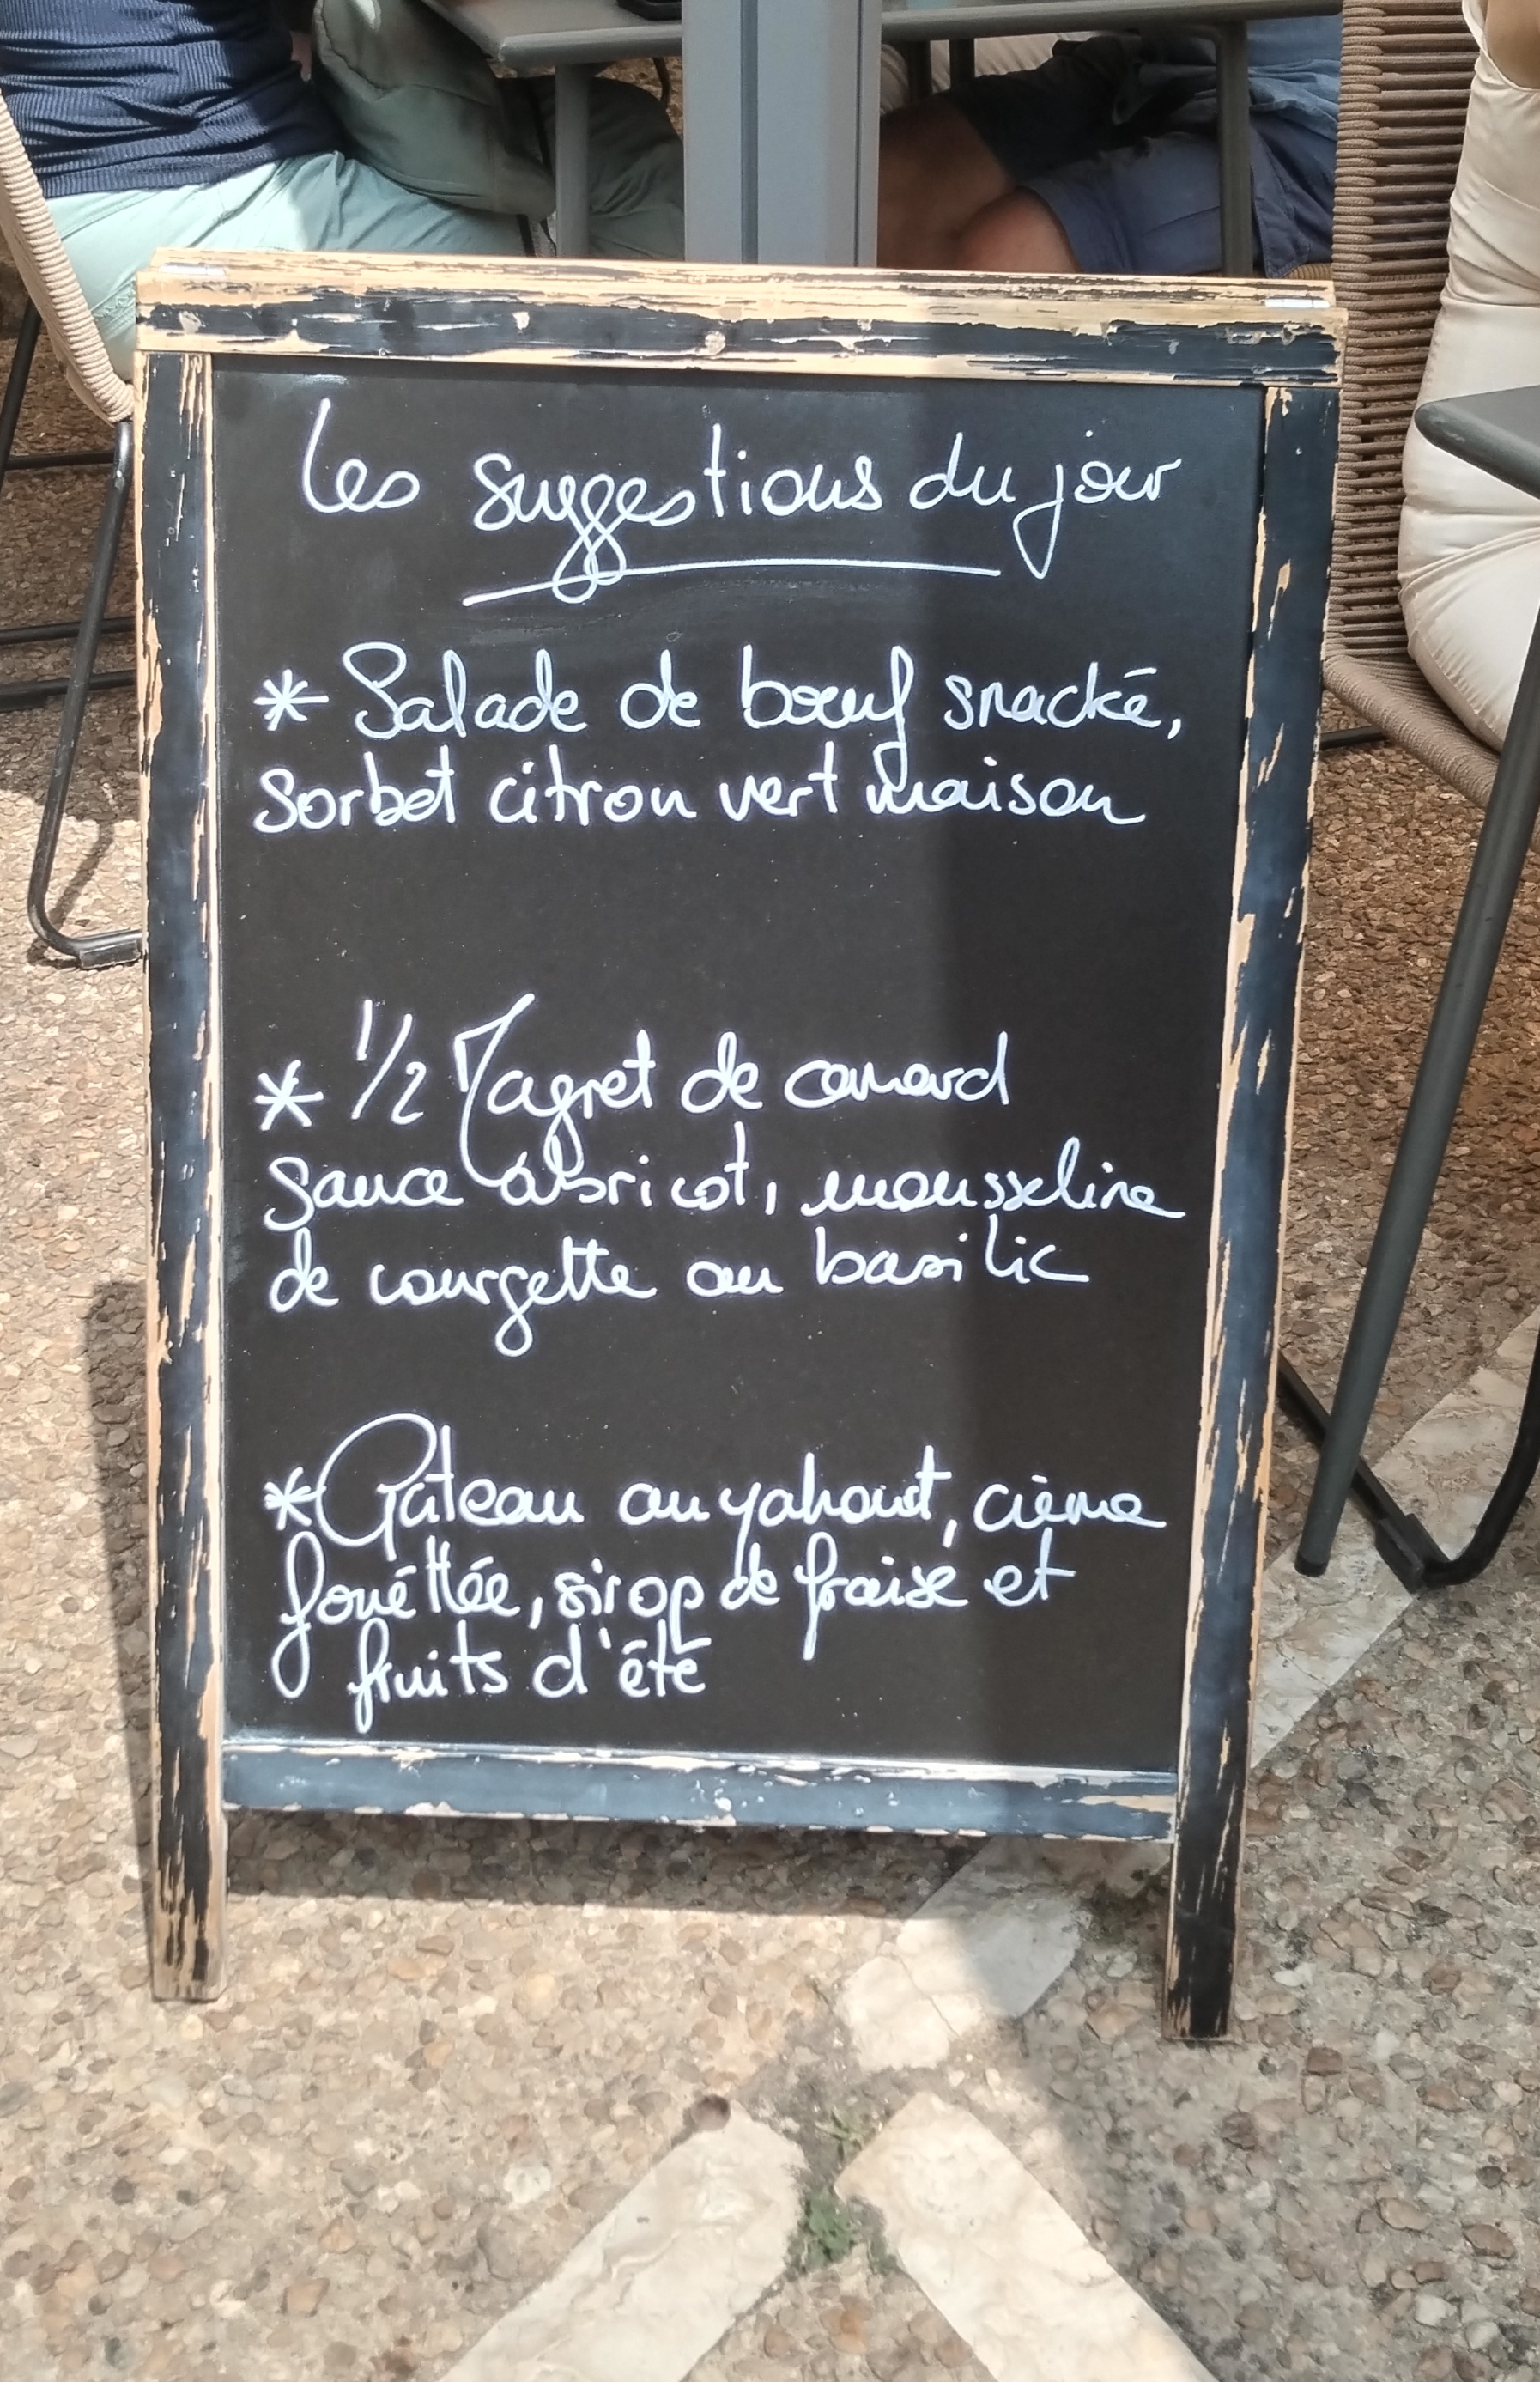 Les suggestions du jour
* Salade de bœuf snacké,
sorbet citron vert maison
* 1/2 Magret de canard
sauce abricot, mousseline
de courgette au basilic
* Gâteau au yahourt, crème
fouéttée, sirop de fraise et
fruits d'été